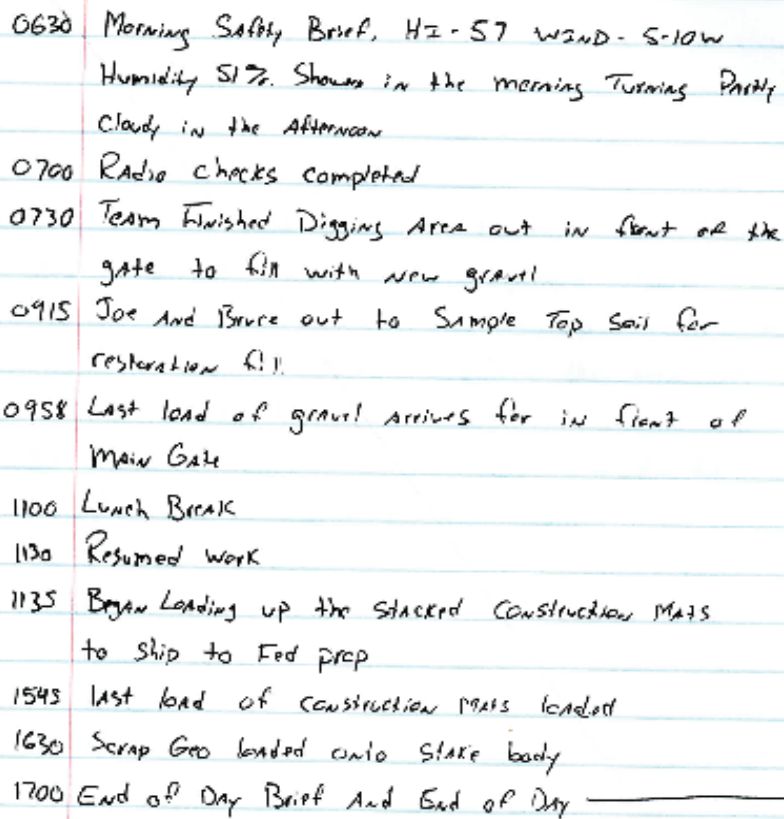 0630 Morning Safety Brief, HI - 57 WIND - 5-10W
Humidity 51%. Showers in the morning Turning Partly
Cloudy in the Afternoon
0700 Radio checks completed
0730 Team Finished Digging Area out in front of the
gate to fill with new gravel
0915 Joe And Bruce out to Sample Top Soil for
restoration fill
0958 Last load of gravel arrives for in front of
Main Gate
1100 Lunch Break
1130 Resumed work
1135 Began Loading up the stacked Construction Mats
to ship to Fed prep
1545 last load of construction Mats loaded
1630 Scrap Geo loaded onto stake body
1700 End of Day Brief And End of Day